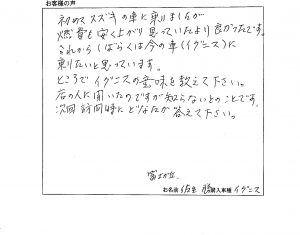 お客様の声
初めて スズキ の車に乗りましたが
燃費も安く上がり 思っていたより良かったです。
これから しばらくは今の車(イグニス)に
乗りたいと思っています。
ところで イグニスの意味を教えて下さい。
店の人に聞いたのですが知らないとのことです。
次回訪問時に どなたか 答えて下さい。
富士が丘
お名前 佐々 勝 購入車種 イグニス